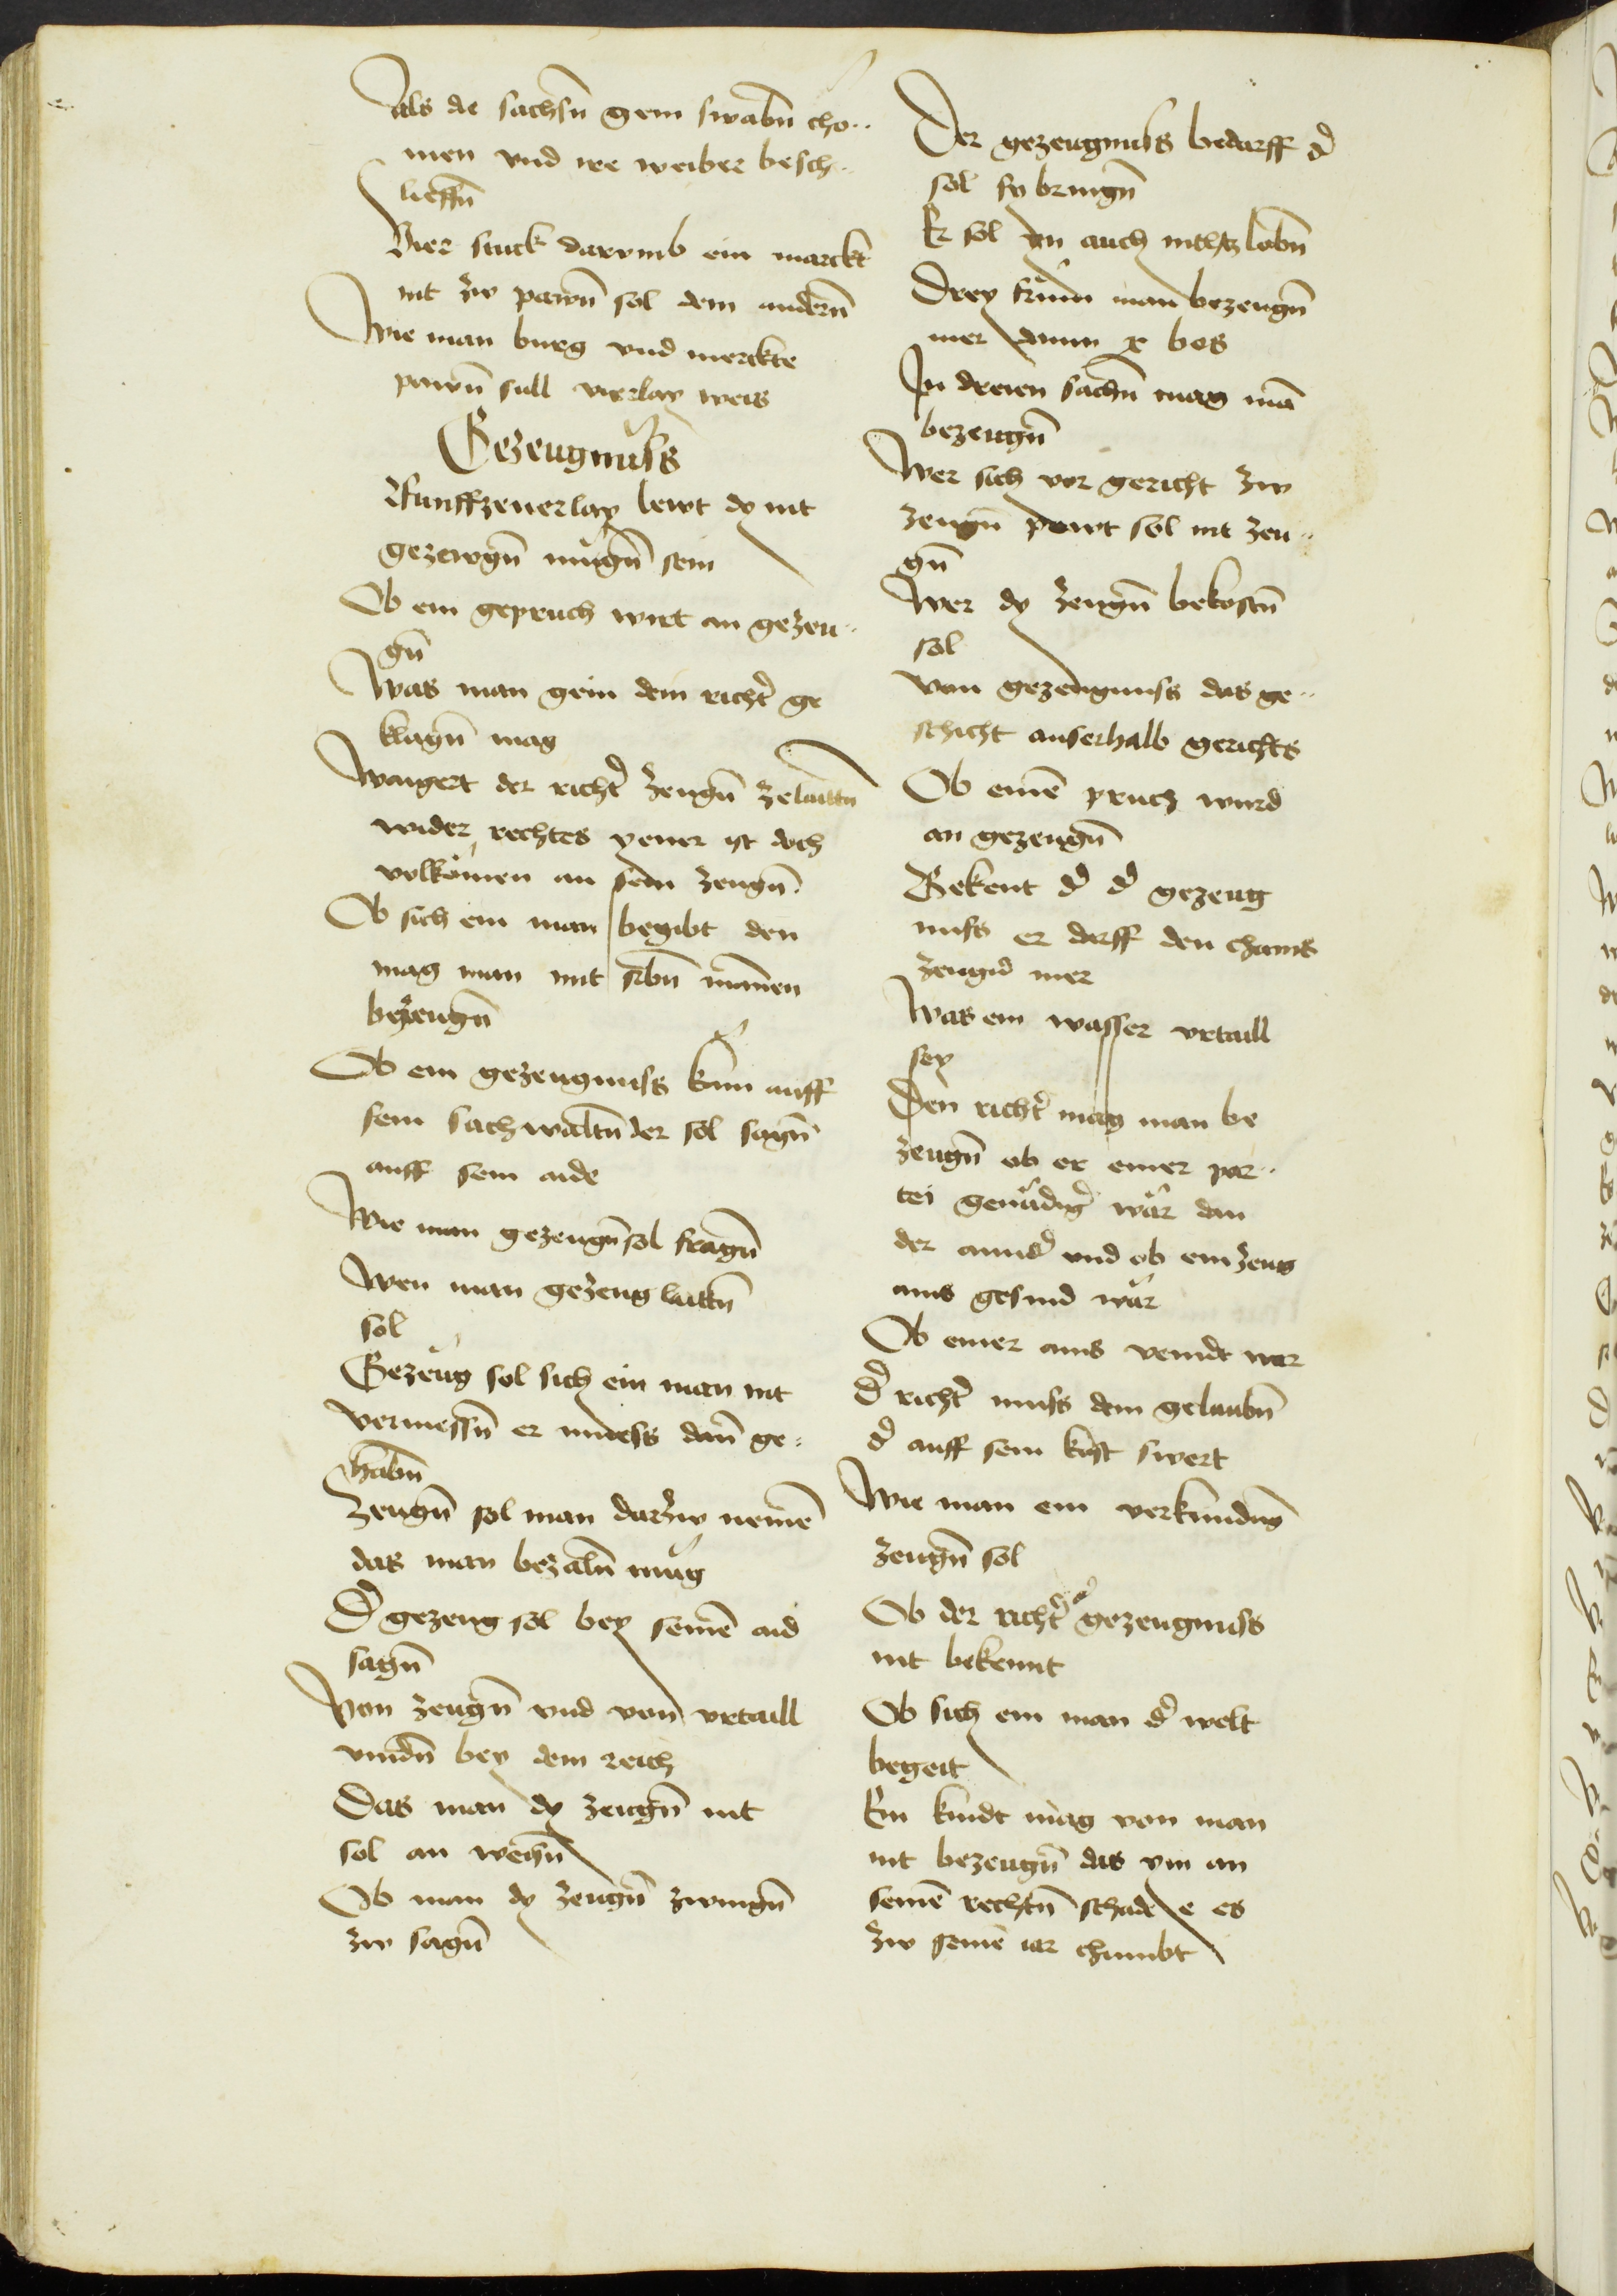 als die sachsn̄ gem swabn̄ cho..
men vnd ire weiber besch..
lieffn̄
Vier stuck darvmb ein marckt
nit zw pawn̄ sol dem andern̄
Wie man burg vnd merckte
pawn̄ sull vierlay weis
Gezeugnuss
Funffzenerlay lewt dy nit
gezewgn̄ mugn̄ sein
Ob ein gepruch wirt an gezeu..
gn̄
Was man gein dem richt̉ ge
klagn̄ mag
Waigert der richt̉ zeugn̄ zelaittn̄
wider rechtes yener ist doch
volkomen an sein zeugn̄
Ob sich ein man begibt den
mag man mit sibn̄ mannen
bezeugn̄
Ob ein gezeugnuss kum auff
sein sachwaltn̄ der sol sagn̄
auff sein aide
Wie man gezeugn̄ sol fragn̄
Wen man gezeug laittn̄
sol
Gezeug sol sich ein man nit
vermessn̄ er muess dan̄ ge..
habn̄
Zeugn̄ sol man darzw nemē
das man bezaln̄ mug
D̉ gezeug sol bey seinē aid
sagn̄
Von zeugn̄ vnd von vrtaill
vindn̄ bey dem reich
Das man dy zeugn̄ nit
sol an weisn̄
Ob man dy zeugn̄ zwingn̄
zw sagn̄
Der gezeugnuss bedarff d̉
sol sy bringn̄
Er sol in auch nichtz lobn̄
Drey frum man bezeugn̄
mer dann x bos
In dreien sachn̄ mag mā
bezeugn̄
Wer sich vor gericht zw
zeugn̄ pewt sol nit zeu..
gn̄
Wer dy zeugn̄ bekostn̄
sol
Von gezeugnuss das ge..
schicht auserhalb gerichts
Ob einē pruch wurd
an gezeugn̄
Bekent d̉ d̉ gezeug
nuss er darff den chains
zeugn̄ mer
Was ein wasser vrtaill
sey
Den richt̉ mag man be
zeugn̄ ob er einer par..
tei genadig̉ war dan
der annd̉ vnd ob ein zeug
ains gesind war
Ob einer ains veindt wer
d̉ richt̉ muss dem gelaubn̄
d̉ auff sein kost swert
Wie man ein verkundung
zeugn̄ sol
Ob der richt̉ d̉ gezeugnuss
nit bekennt
Ob sich ein man d̉ welt
begeit
Ein kindt mag von man
nit bezeugn̄ das vm an
seinē rechtn̄ schade e es
zw seinē iar chumbt